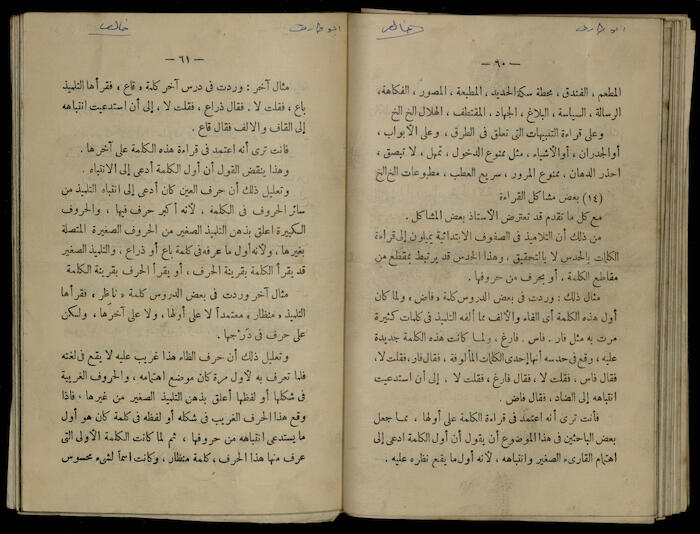 ابو طارق
خالص
— ٦٠ —
المطعم ، الفندق ، محطة سكة الحديد ، المطبعة ، المصور ، الفكاهة ،
الرسالة ، السياسة ، البلاغ ، الجهاد ، المقتطف ، الهلال الخ الخ
وعلى قراءة التنبيهات التى تعلق فى الطرق ، وعلى الأبواب ،
أو الجدران ، أو الأشياء ، مثل ممنوع الدخول ، تمهل ، لا تبصق ،
احذر الدهان ، ممنوع المرور ، سريع العطب ، مطبوعات الخ الخ
(١٤) بعض مشاكل القراءة
مع كل ما تقدم قد تعترض الأستاذ بعض المشاكل .
من ذلك أن التلاميذ فى الصفوف الابتدائية يميلون إلى قراءة
الكلمات بالحدس لا بالتحقيق ، وهذا الحدس قد يرتبط بمقطع من
مقاطع الكلمة ، أو بحرف من حروفها .
مثال ذلك : وردت فى بعض الدروس كلمة « فاض ، ولما كان
أول هذه الكلمة أى الفاء والألف مما ألفه التلميذ فى كلمات كثيرة
مرت به مثل فار . فاس . فارغ ، ولما كانت هذه الكلمة جديدة
عليه ، وقع فى حدسه أنها إحدى الكلمات المألوفة ، فقال فار ، فقلت لا ،
فقال فاس ، فقلت لا ، فقال فارغ ، فقلت لا ، إلى أن استدعيت
انتباهه إلى الضاد ، فقال فاض .
فأنت ترى أنه اعتمد فى قراءة الكلمة على أولها ، مما جعل
بعض الباحثين فى هذا الموضوع أن يقول أن أول الكلمة ادعى إلى
اهتمام القارىء الصغير وانتباهه ، لأنه أول ما يقع نظره عليه .
ابو طارق
خالص
— ٦١ —
مثال آخر : وردت فى درس آخر كلمة « قاع ، فقرأها التلميذ
باع ، فقلت لا . فقال ذراع ، فقلت لا ، إلى أن استدعيت انتباهه
إلى القاف والالف فقال قاع .
فانت ترى أنه اعتمد فى قراءة هذه الكلمة على آخرها .
وهذا ينقض القول أن أول الكلمة أدعى إلى الانتباه .
وتعليل ذلك أن حرف العين كان أدعى إلى انتباه التلميذ من
سائر الحروف فى الكلمة ، لأنه أكبر حرف فيها ، والحروف
الكبيرة اعلق بذهن التلميذ الصغير من الحروف الصغيرة المتصلة
بغيرها ، ولأنه أول ما عرفه فى كلمة باع أو ذراع ، والتلميذ الصغير
قد يقرأ الكلمة بقرينة الحرف ، أو يقرأ الحرف بقرينة الكلمة
مثال آخر وردت فى بعض الدروس كلمة « ناظر ، فقرأها
التلميذ « منظار ، معتمداً لا على أولها ، ولا على آخرها ، ولكن
على حرف فى دَرْجها .
وتعليل ذلك أن حرف الظاء هذا غريب عليه لا يقع فى لغته
فلما تعرف به لأول مرة كان موضع اهتمامه ، والحروف الغريبة
فى شكلها أو لفظها أعلق بذهن التلميذ الصغير من غيرها ، فاذا
وقع هذا الحرف الغريب فى شكله أو لفظه فى كلمة كان هو أول
ما يستدعى انتباهه من حروفها ، ثم لما كانت الكلمة الأولى التى
عرف منها هذا الحرف ، كلمة منظار ، وكانت اسماً لشىء محسوس